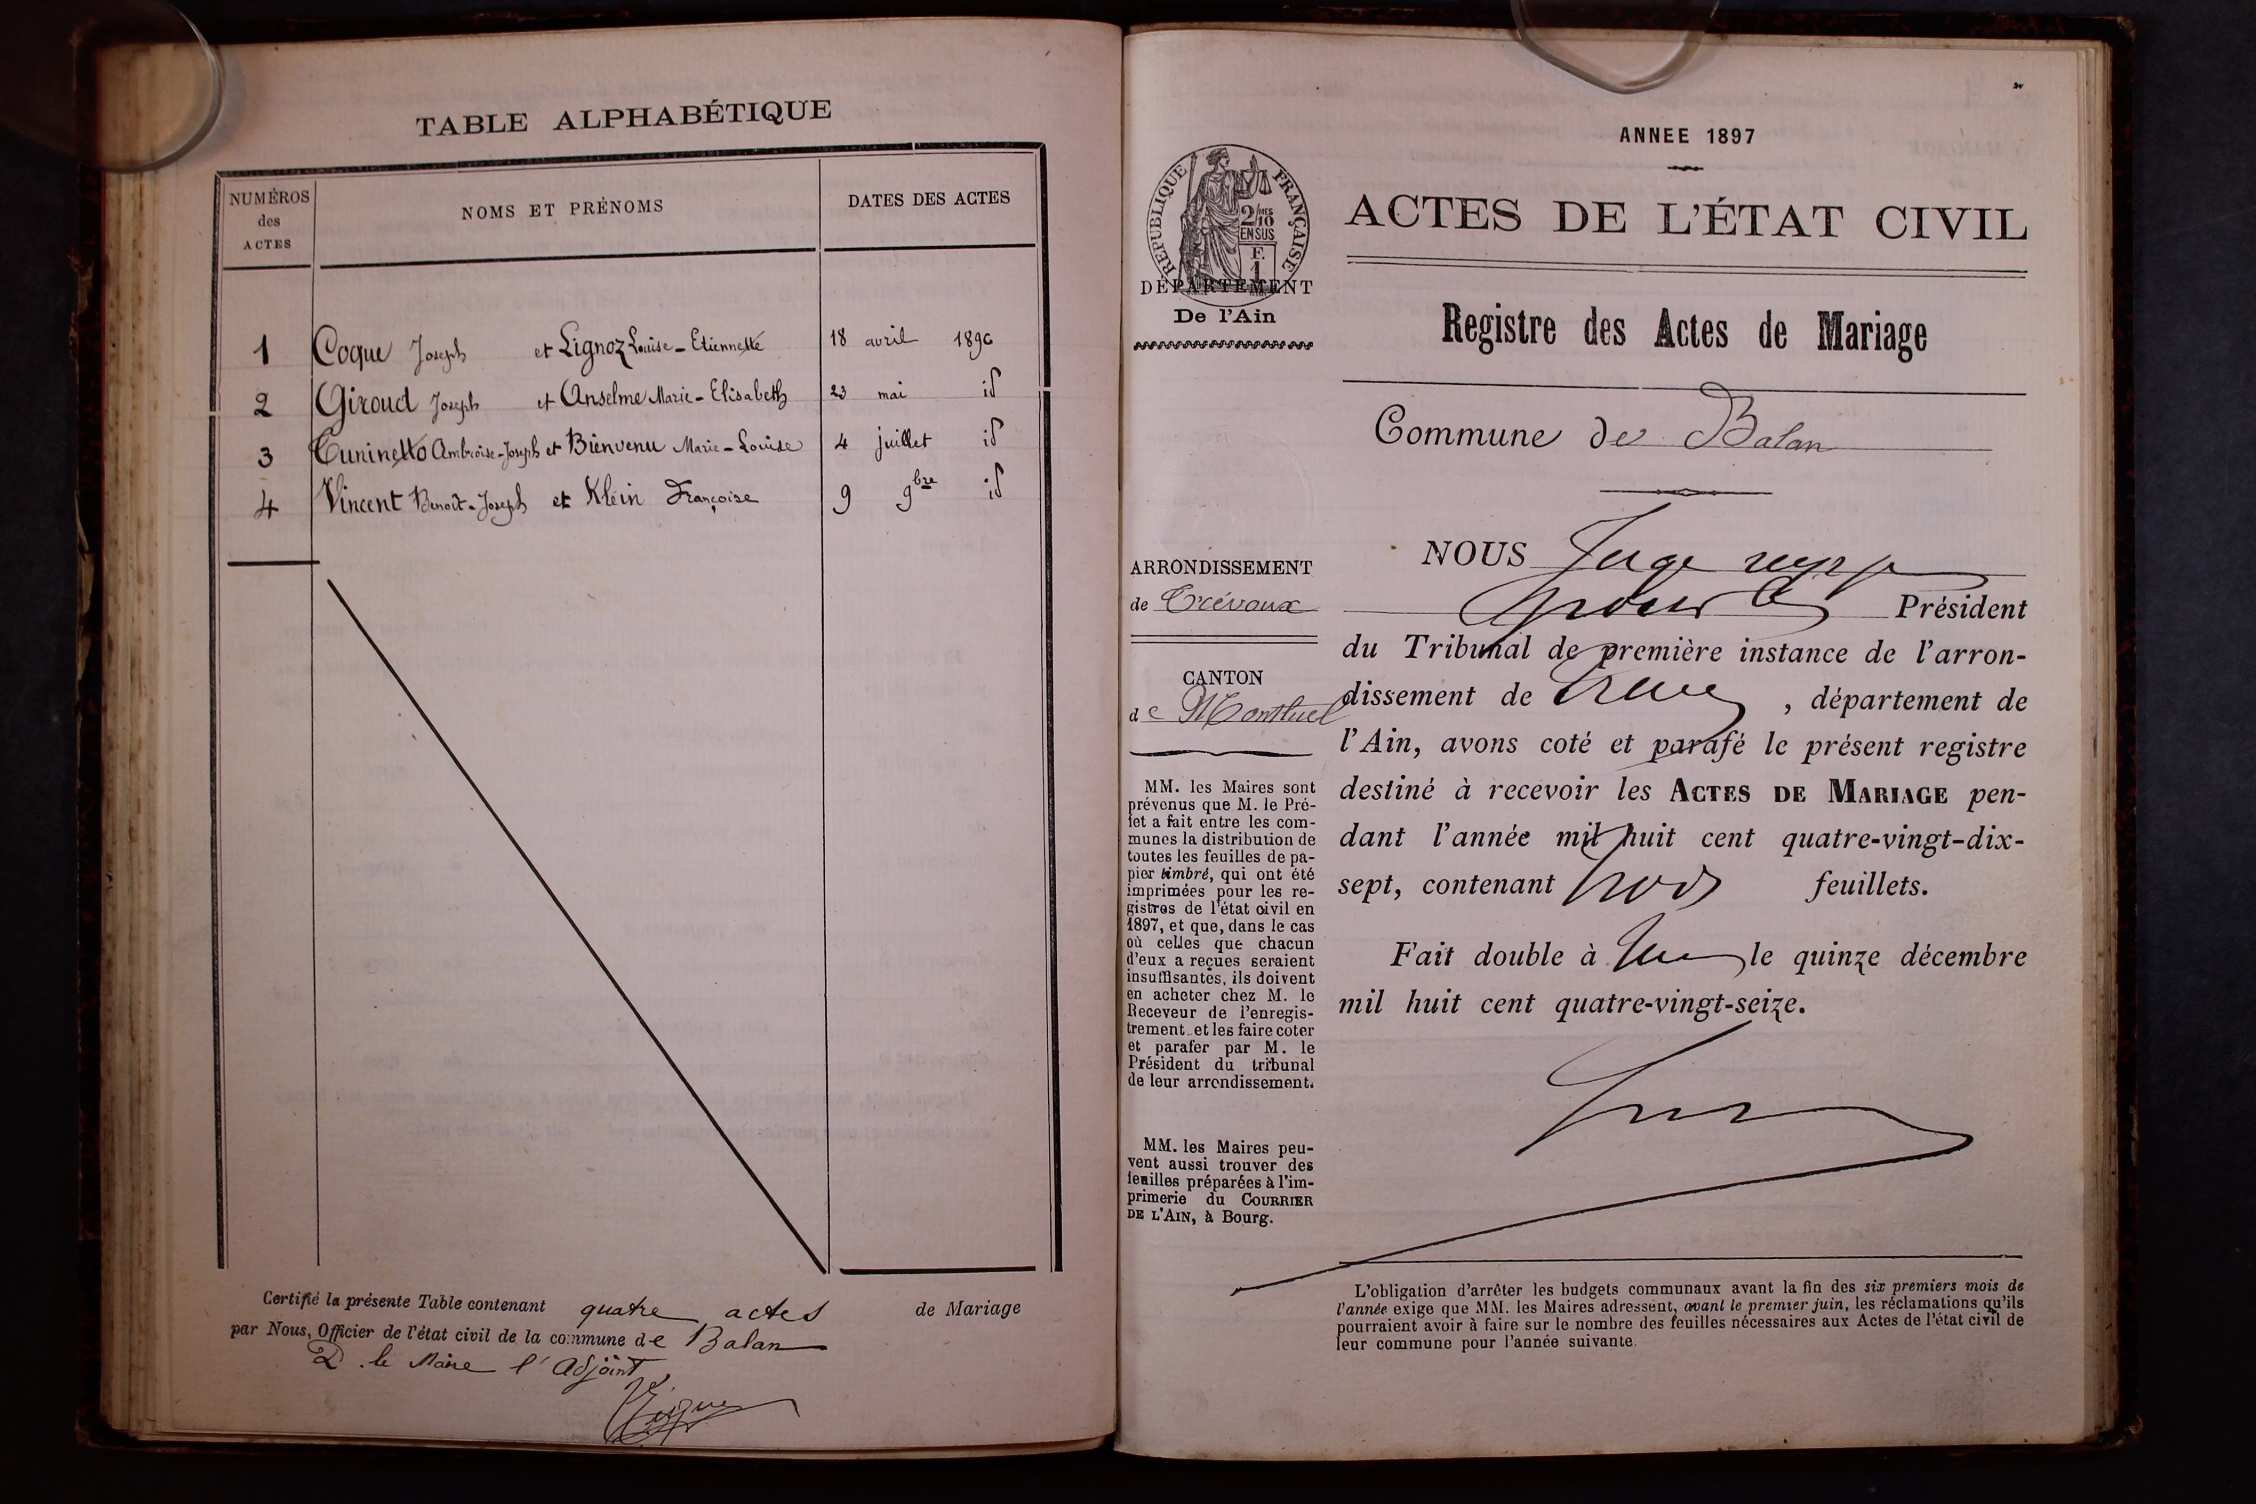 TABLE ALPHABÉTIQUE
NUMÉROS des ACTES
NOMS ET PRÉNOMS
DATES DES ACTES
1 Coque Joseph et Lignoz Louise-Etiennette 18 avril 1896
2 Giroud Joseph et Anselme Marie-Elisabeth 23 mai id
3 Cuninetto Ambroise-Joseph et Bienvenu Marie-Louise 4 juillet id
4 Vincent Benoît-Joseph et Klein Françoise 9 9bre id
Certifié la présente Table contenant quatre actes de Mariage
par Nous, Officier de l'état civil de la commune de Balan
P. le Maire l'Adjoint
ANNEE 1897
REPUBLIQUE FRANÇAISE
2/10 MES
EN SUS
F.
1
DÉPARTEMENT
De l'Ain
ARRONDISSEMENT
de Trévoux
CANTON
de Montluel
MM. les Maires sont
prévenus que M. le Pré-
fet a fait entre les com-
munes la distribution de
toutes les feuilles de pa-
pier timbré, qui ont été
imprimées pour les re-
gistres de l'état civil en
1897, et que, dans le cas
où celles que chacun
d'eux a reçues seraient
insuffisantes, ils doivent
en acheter chez M. le
Receveur de l'enregis-
trement et les faire coter
et parafer par M. le
Président du tribunal
de leur arrondissement.
MM. les Maires peu-
vent aussi trouver des
feuilles préparées à l'im-
primerie du COURRIER
DE L'AIN, à Bourg.
ACTES DE L'ÉTAT CIVIL
Registre des Actes de Mariage
Commune de Balan
NOUS Juge
pour le Président
du Tribunal de première instance de l'arron-
dissement de Trévoux, département de
l'Ain, avons coté et parafé le présent registre
destiné à recevoir les ACTES DE MARIAGE pen-
dant l'année mil huit cent quatre-vingt-dix-
sept, contenant trois feuillets.
Fait double à le quinze décembre
mil huit cent quatre-vingt-seize.
L'obligation d'arrêter les budgets communaux avant la fin des six premiers mois de
l'année exige que MM. les Maires adressent, avant le premier juin, les réclamations qu'ils
pourraient avoir à faire sur le nombre des feuilles nécessaires aux Actes de l'état civil de
leur commune pour l'année suivante.